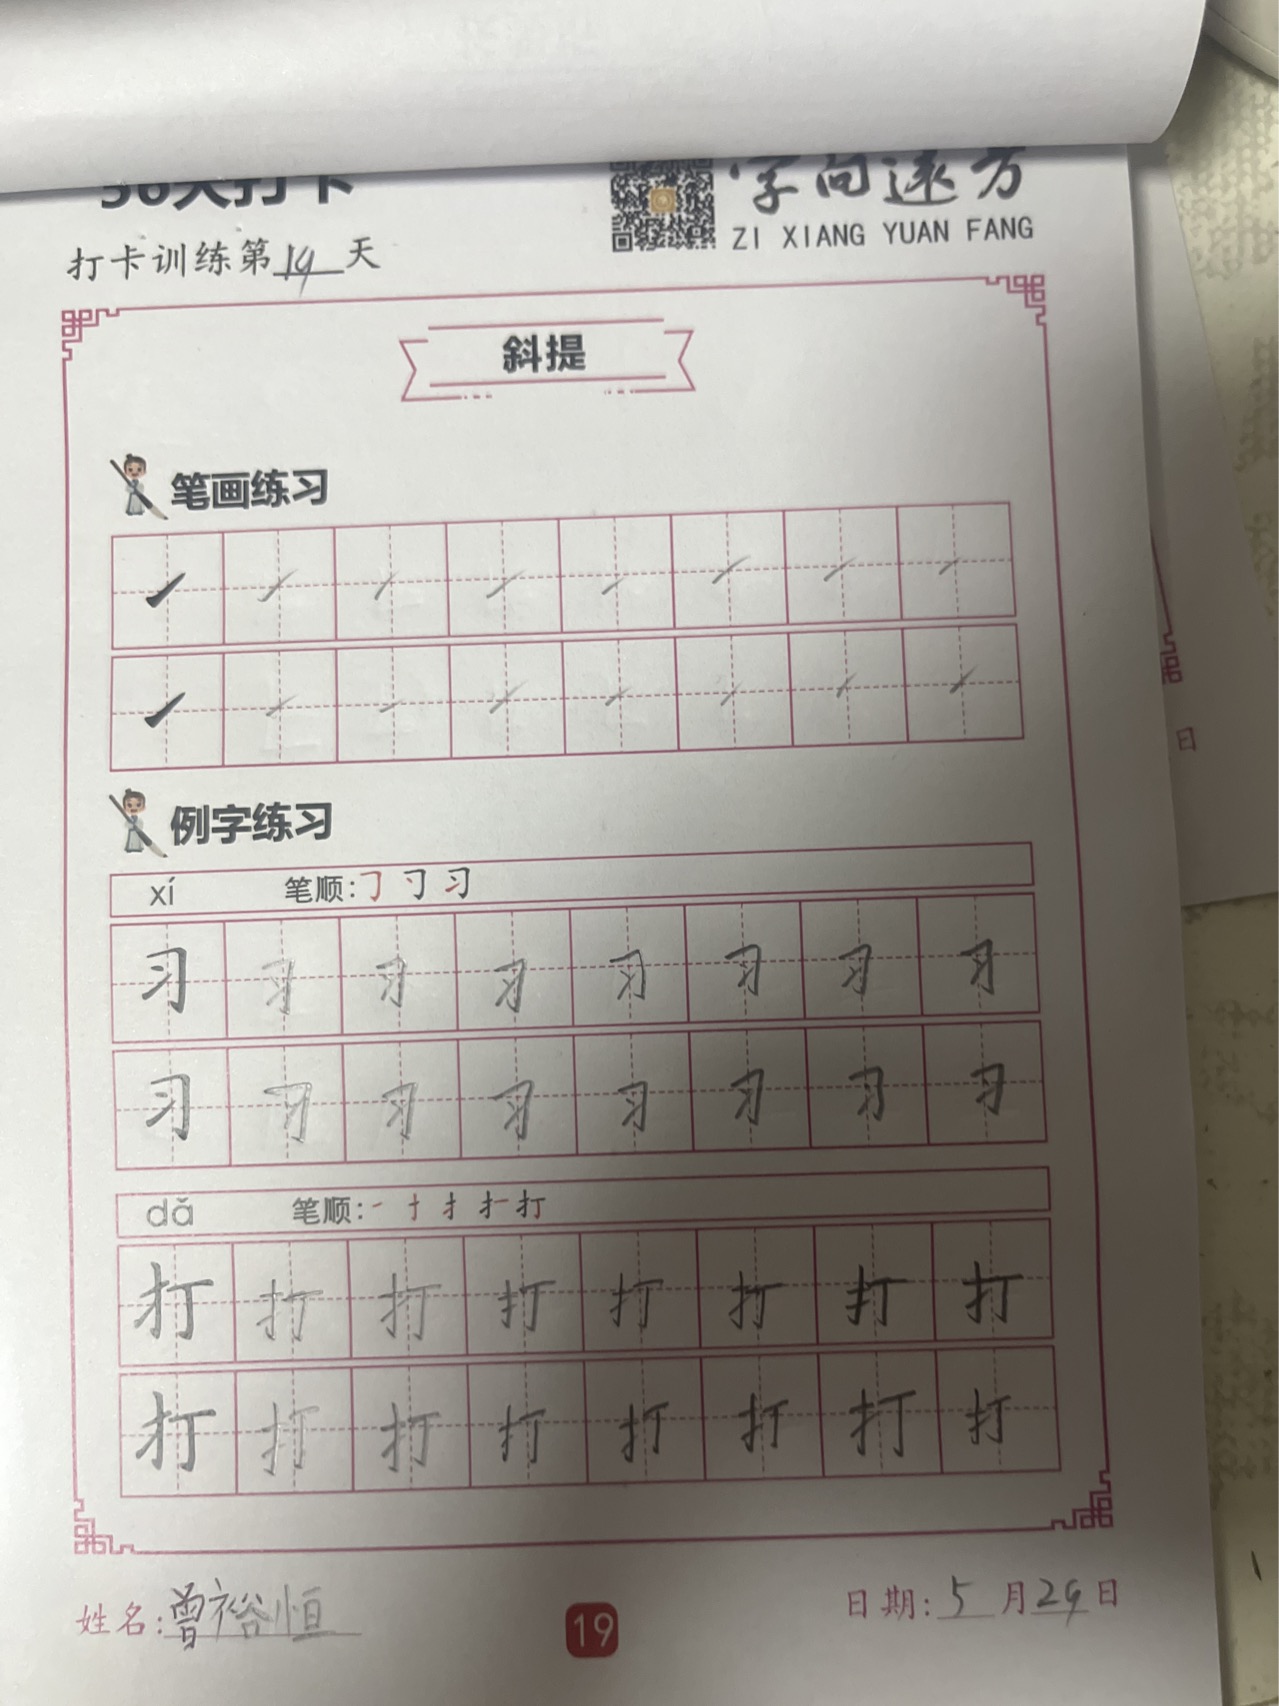 30天打卡
字向远方
ZI XIANG YUAN FANG
打卡训练第19天
斜提
笔画练习
例字练习
xí 笔顺:㇆ 刁 习
习 习 习 习 习 习 习 习
习 习 习 习 习 习 习 习
dǎ 笔顺:一 十 扌 扌一 打
打 打 打 打 打 打 打 打
打 打 打 打 打 打 打 打
姓名:曾裕恒
19
日期:5月29日
日